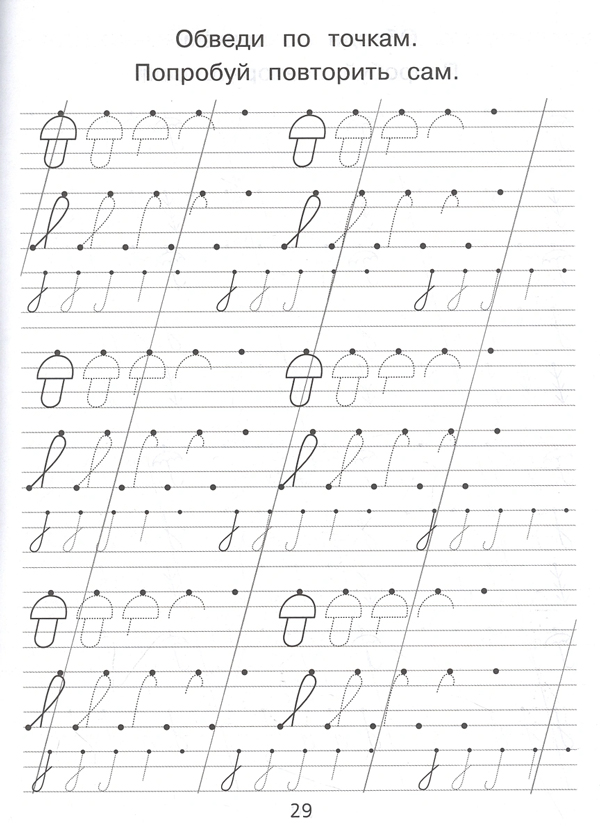 Обведи по точкам.
Попробуй повторить сам.
29